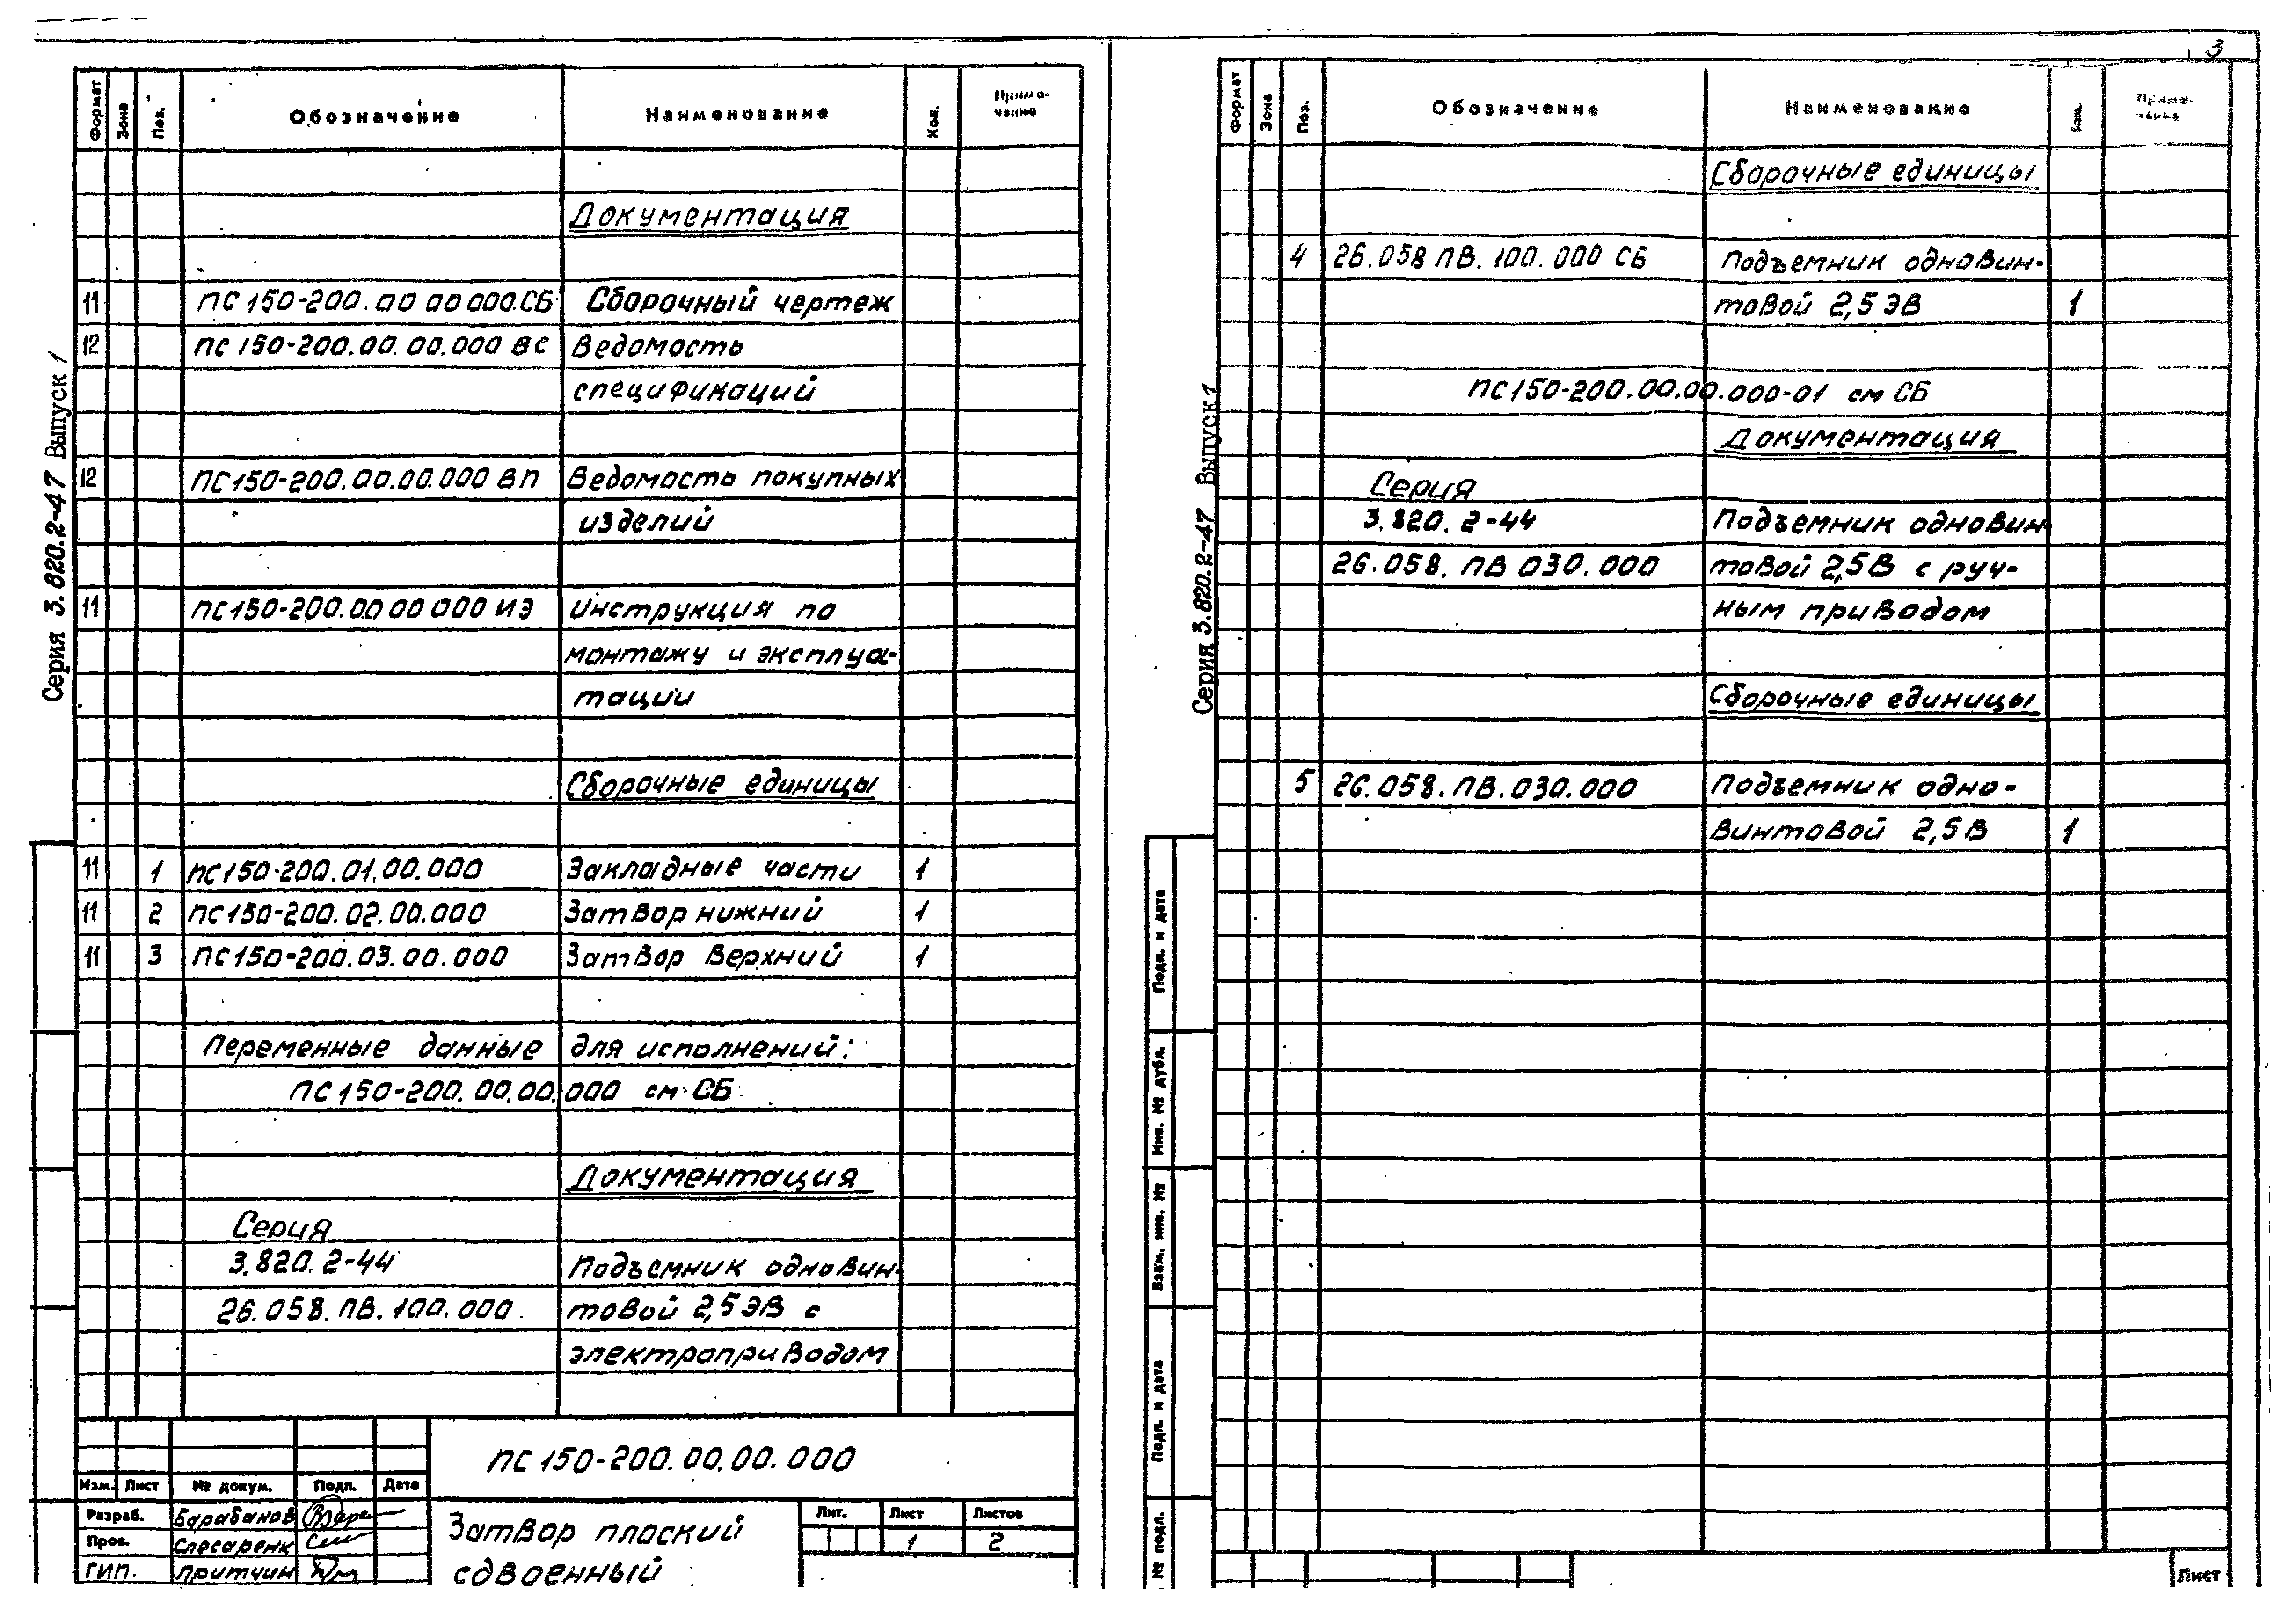 3
Серия 3.820.2-47 Выпуск 1
Формат Зона Поз. Обозначение Наименование Кол. Примечание
Документация
11 ПС150-200.00 00 000.СБ Сборочный чертеж
12 ПС150-200.00.00.000 ВС Ведомость
спецификаций
12 ПС150-200.00.00.000 ВП Ведомость покупных
изделий
11 ПС150-200.00 00 000 ИЭ Инструкция по
монтажу и эксплуа-
тации
Сборочные единицы
11 1 ПС150-200.01.00.000 Закладные части 1
11 2 ПС150-200.02.00.000 Затвор нижний 1
11 3 ПС150-200.03.00.000 Затвор верхний 1
Переменные данные для исполнений:
ПС150-200.00.00.000 см СБ
Документация
Серия
3.820.2-44 Подъемник одновин-
26.058.ПВ.100.000. товой 2,5ЭВ с
электроприводом
ПС150-200.00.00.000
Изм. Лист № докум. Подп. Дата
Разраб. Барабанов
Пров. Слесаренк
ГИП. Притчин
Затвор плоский
сдвоенный
Лит. Лист Листов
1 2
Серия 3.820.2-47 Выпуск 1
Формат Зона Поз. Обозначение Наименование Кол. Примечание
Сборочные единицы
4 26.058 ПВ.100.000 СБ Подъемник одновин-
товой 2,5ЭВ 1
ПС150-200.00.00.000-01 см СБ
Документация
Серия
3.820.2-44 Подъемник одновин
26.058. ПВ 030.000 товой 2,5В с руч-
ным приводом
Сборочные единицы
5 26.058.ПВ.030.000 Подъемник одно-
винтовой 2,5В 1
Подп. и дата
Инв. № дубл.
Взам. инв. №
Подп. и дата
№ подл.
Лист